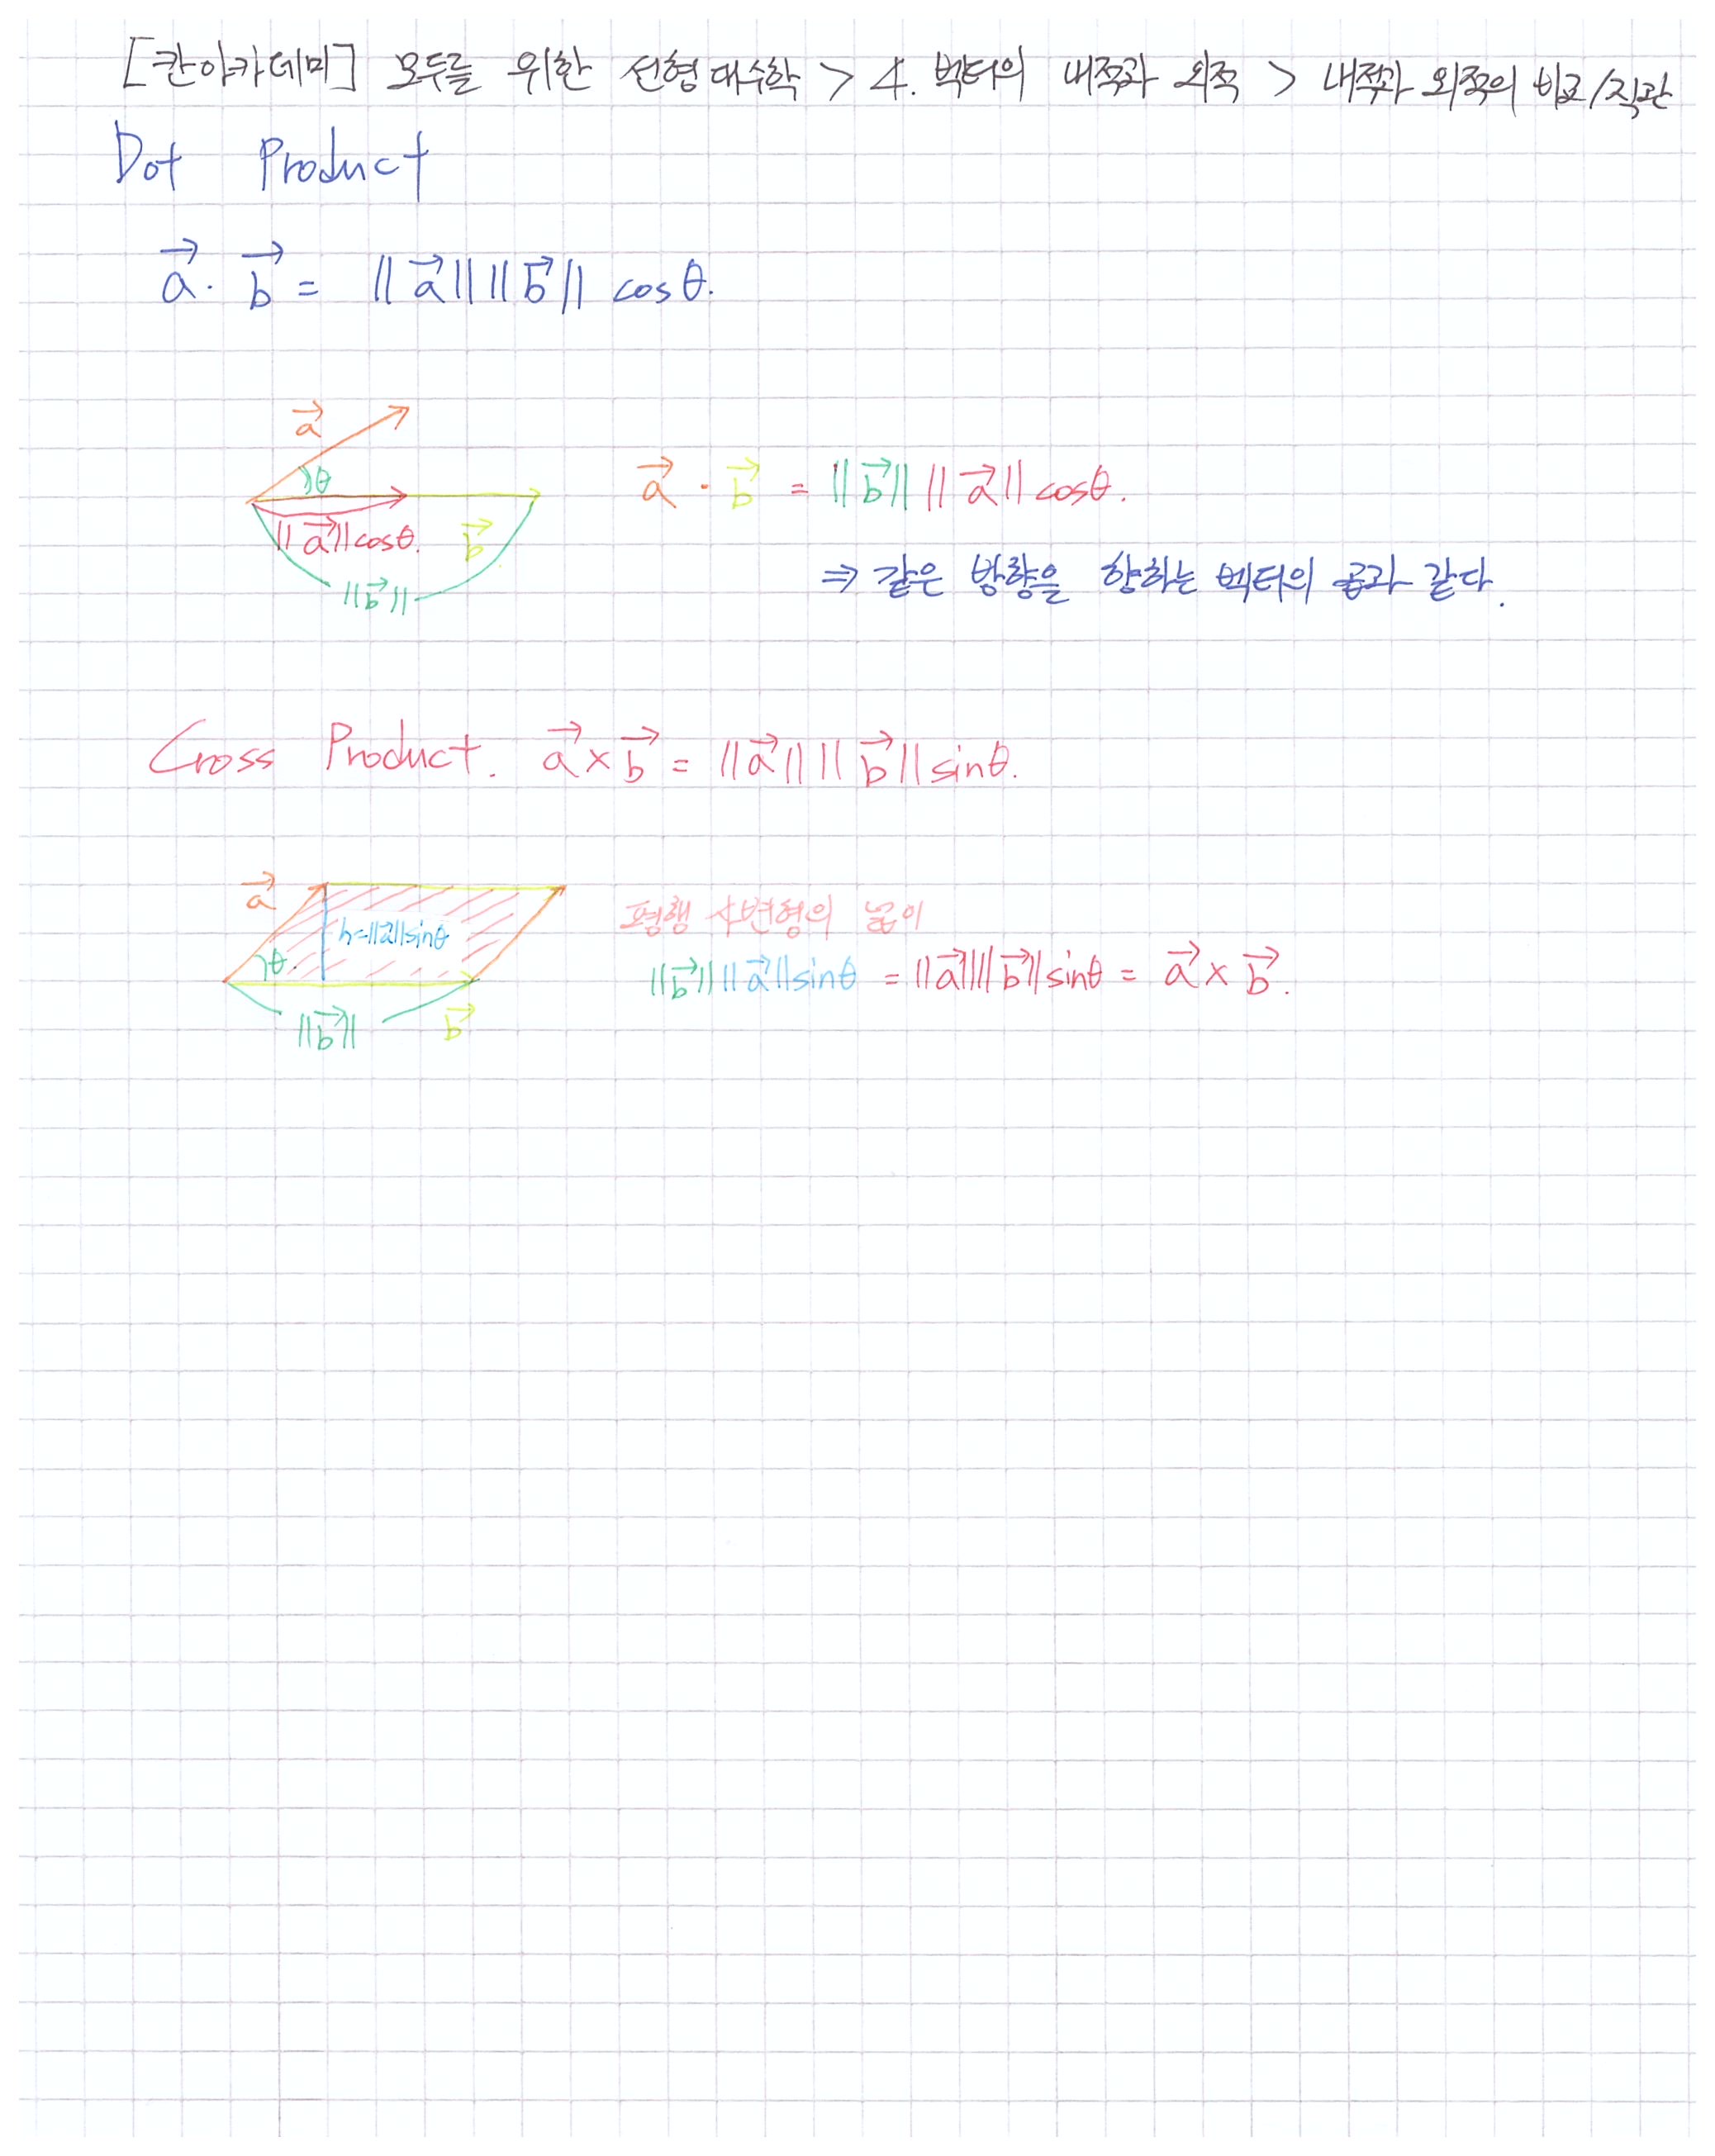 [칸아카데미] 모두를 위한 선형대수학 > 4. 벡터의 내적과 외적 > 내적과 외적의 비교/직관
Dot Product
a⃗ · b⃗ = ||a⃗|| ||b⃗|| cosθ.
a⃗
θ
a⃗ · b⃗ = ||b⃗|| ||a⃗|| cosθ.
||a⃗|| cosθ. b⃗
||b⃗||
⇒ 같은 방향을 향하는 벡터의 곱과 같다.
Cross Product. a⃗ × b⃗ = ||a⃗|| ||b⃗|| sinθ.
a⃗
h=||a⃗||sinθ
θ
||b⃗|| b⃗
평행사변형의 넓이
||b⃗|| ||a⃗|| sinθ = ||a⃗|| ||b⃗|| sinθ = a⃗ × b⃗.